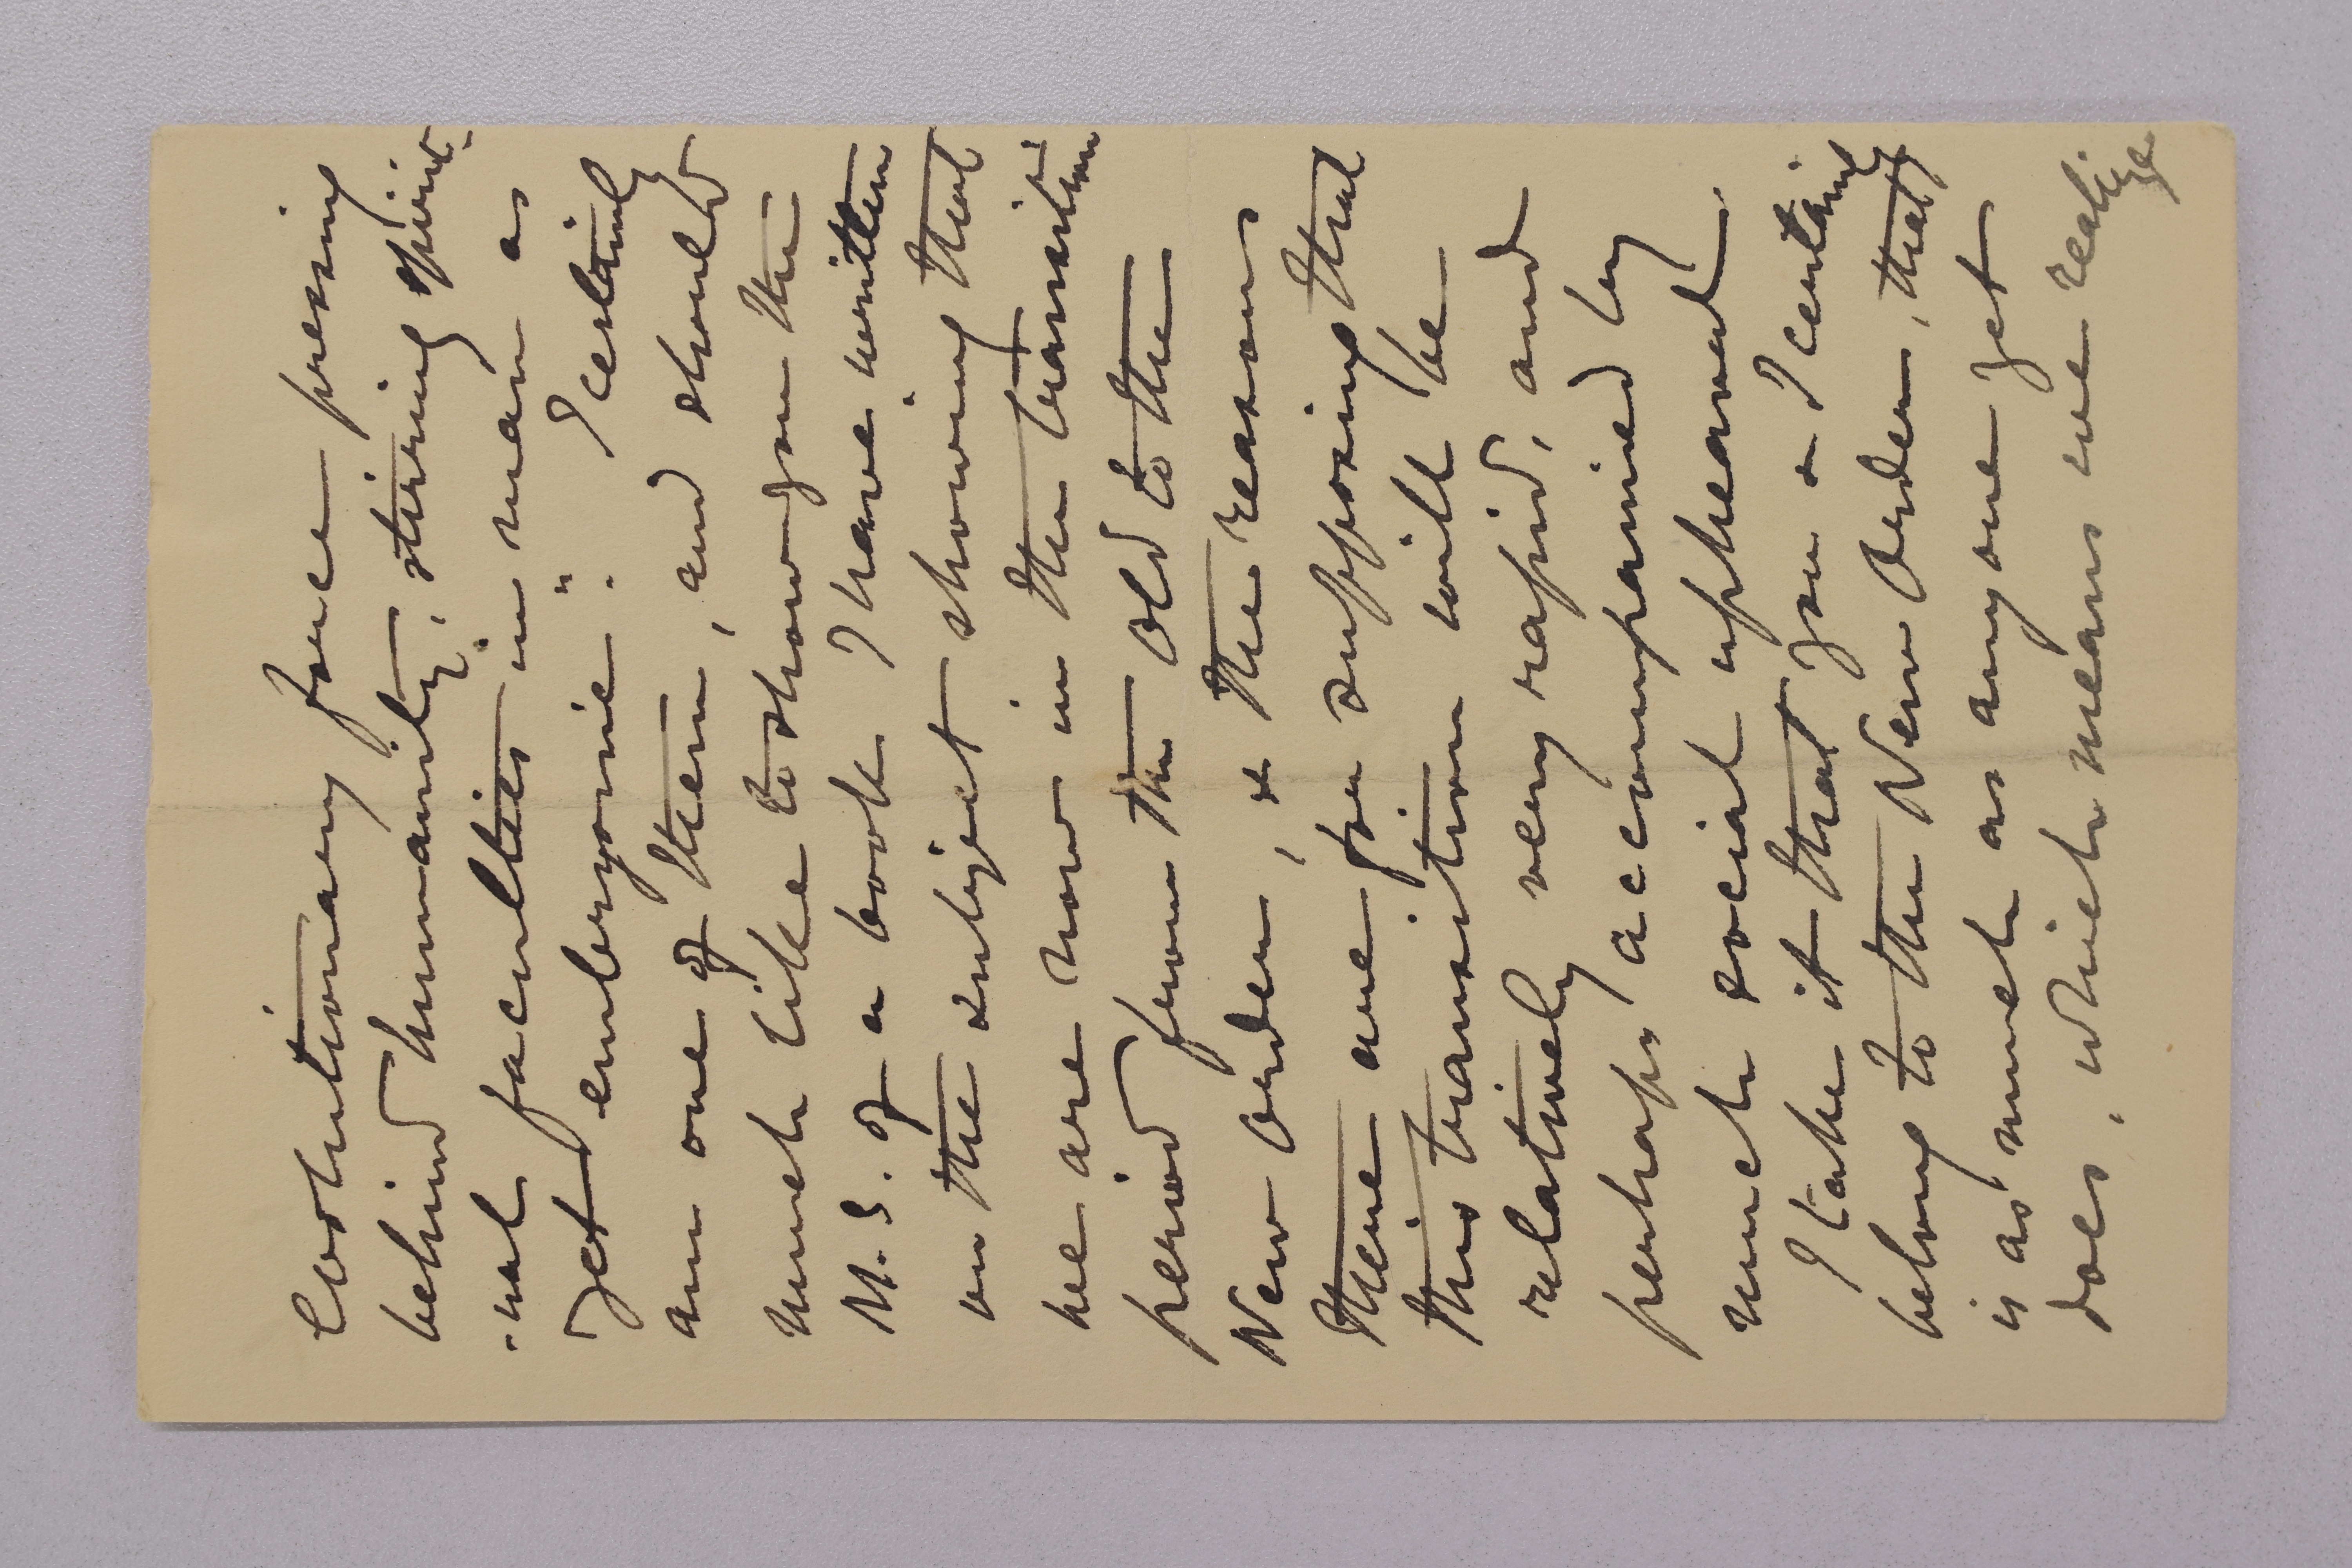 Evolutionary force pressing
behind humanity, stirring spirit-
-ual faculties in man as
yet embryonic". I certainly
am one of them, and should
much like to show you the
M.S. of a book I have written
on the subject showing that
we are now in the transition
period from the Old to the
New Order, & the reasons
there are for supposing that
this transition will be
relatively very rapid, and
perhaps accompanied by
much social upheaval.
I take it that you & I certainly
belong to the New Order, that
is as much as anyone yet
does, which means we realize